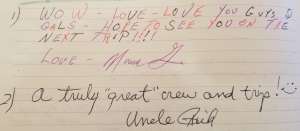 1) WOW - LOVE - LOVE YOU GUYS &
GALS - HOPE TO SEE YOU ON THE
NEXT TRIP!!!!
LOVE -
2) A truly "great" crew and trip! ☺
Uncle